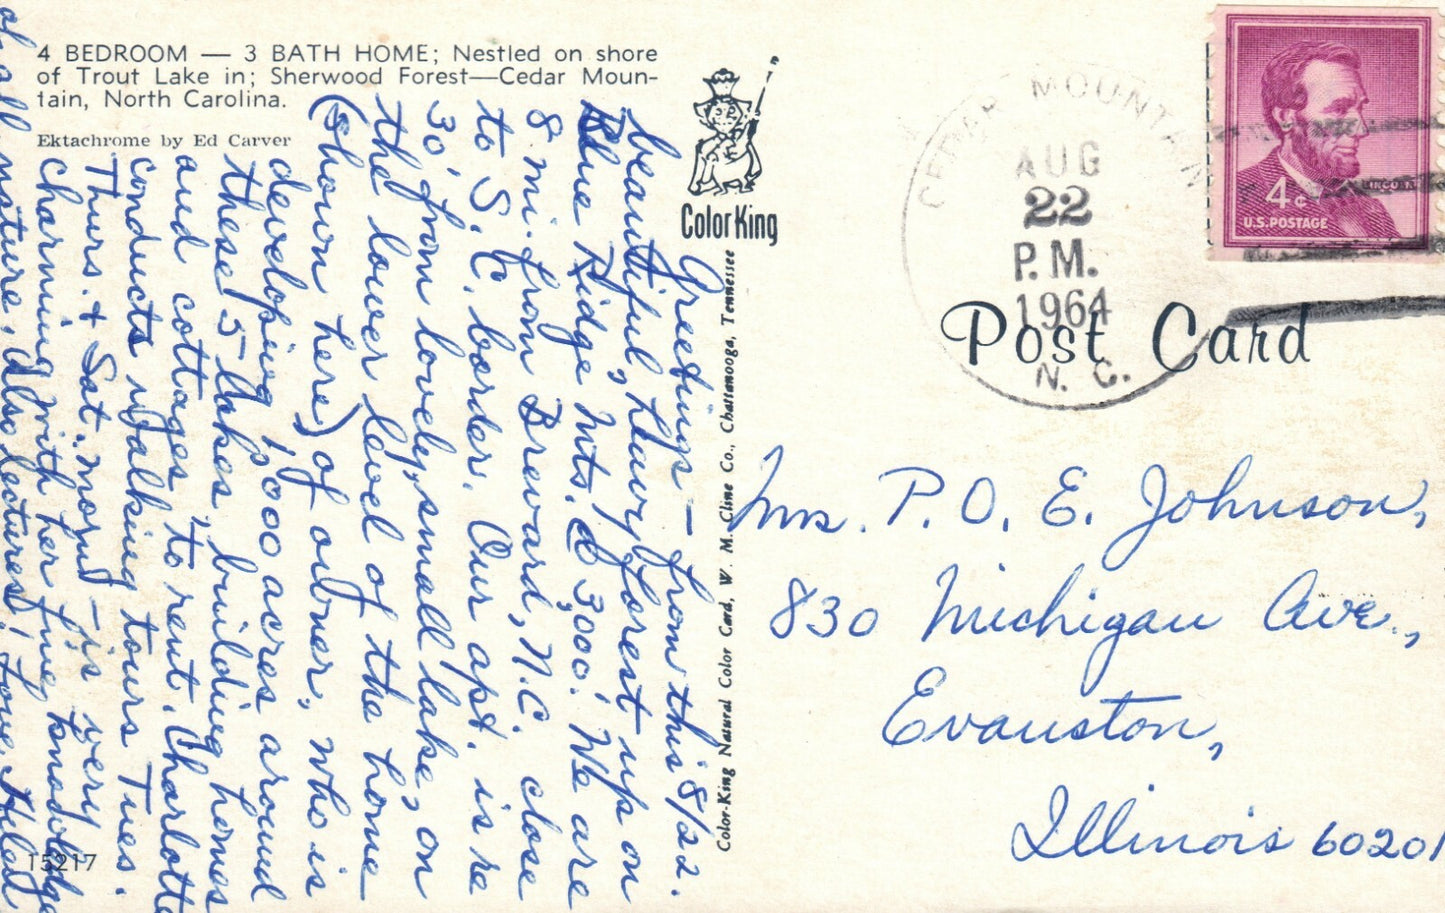 4 BEDROOM — 3 BATH HOME; Nestled on shore
of Trout Lake in; Sherwood Forest—Cedar Moun-
tain, North Carolina.
Ektachrome by Ed Carver
Color King
Color-King Natural Color Card, W. M. Cline Co., Chattanooga, Tennessee
15217
Greetings — from this 8/22.
beautiful, luxury forest up on
Blue Ridge Mts. @ 3,000'. We are
8 mi. from Brevard, N.C. close
to S.C. border. Our apt. is
30' from lovely, small lake, on
the lower level of the home
(shown here) of owner, who is
developing 1,000 acres around
these 5 lakes, building homes
and cottages, to rent. Charlotte
conducts walking tours Tues.
Thurs. + Sat. morns — is very
charming with her fine knowledge
of nature. Also lectures! Love, Helen
CEDAR MOUNTAIN
AUG
22
P.M.
1964
N. C.
LINCOLN
4c
U.S. POSTAGE
Post Card
Mrs. P. O. E. Johnson,
830 Michigan Ave.,
Evanston,
Illinois 60201